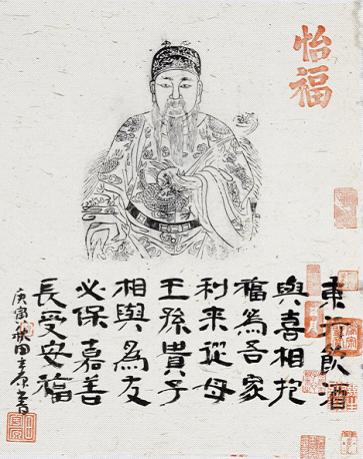 怡福
東飲酒
與喜相抱
福為吾家
利來從母
王孫貴子
相與為友
必保嘉善
長受安福
庚寅秋田